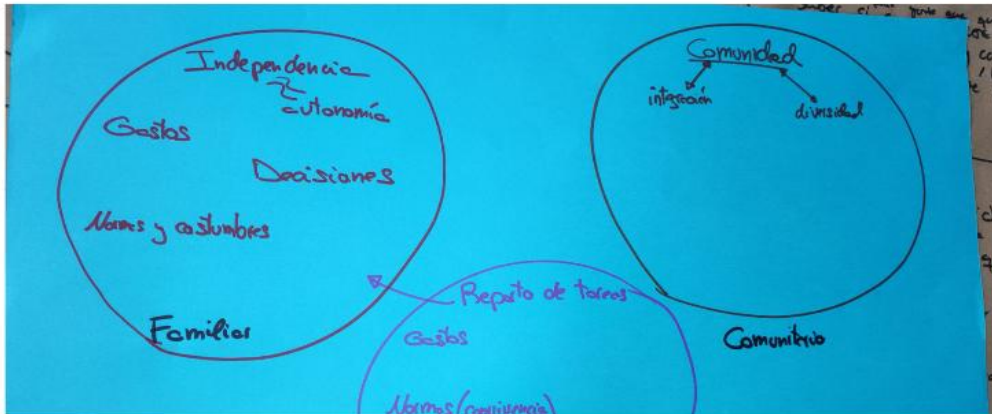 Independencia
autonomía
Gastos
Decisiones
Normas y costumbres
Familiar
Comunidad
integración
diversidad
Comunitario
Reparto de tareas
Gastos
Normas (convivencia)